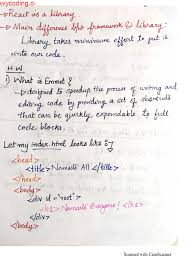 vycoding.io
→ React is a library.
→ Main difference b/w framework & library:
Library takes minimum effort to put it
into our code.
H.W
1) What is Emmet?
→ designed to speedup the process of writing and
editing code by providing a set of shortcuts
that can be quickly expandable to full
code blocks.
Let my index.html looks like by
<head>
<title> Namaste All </title>
</head>
<body>
<div id = "root">
<h1> Namaste Everyone! </h1>
</div>
</body>
Scanned with CamScanner